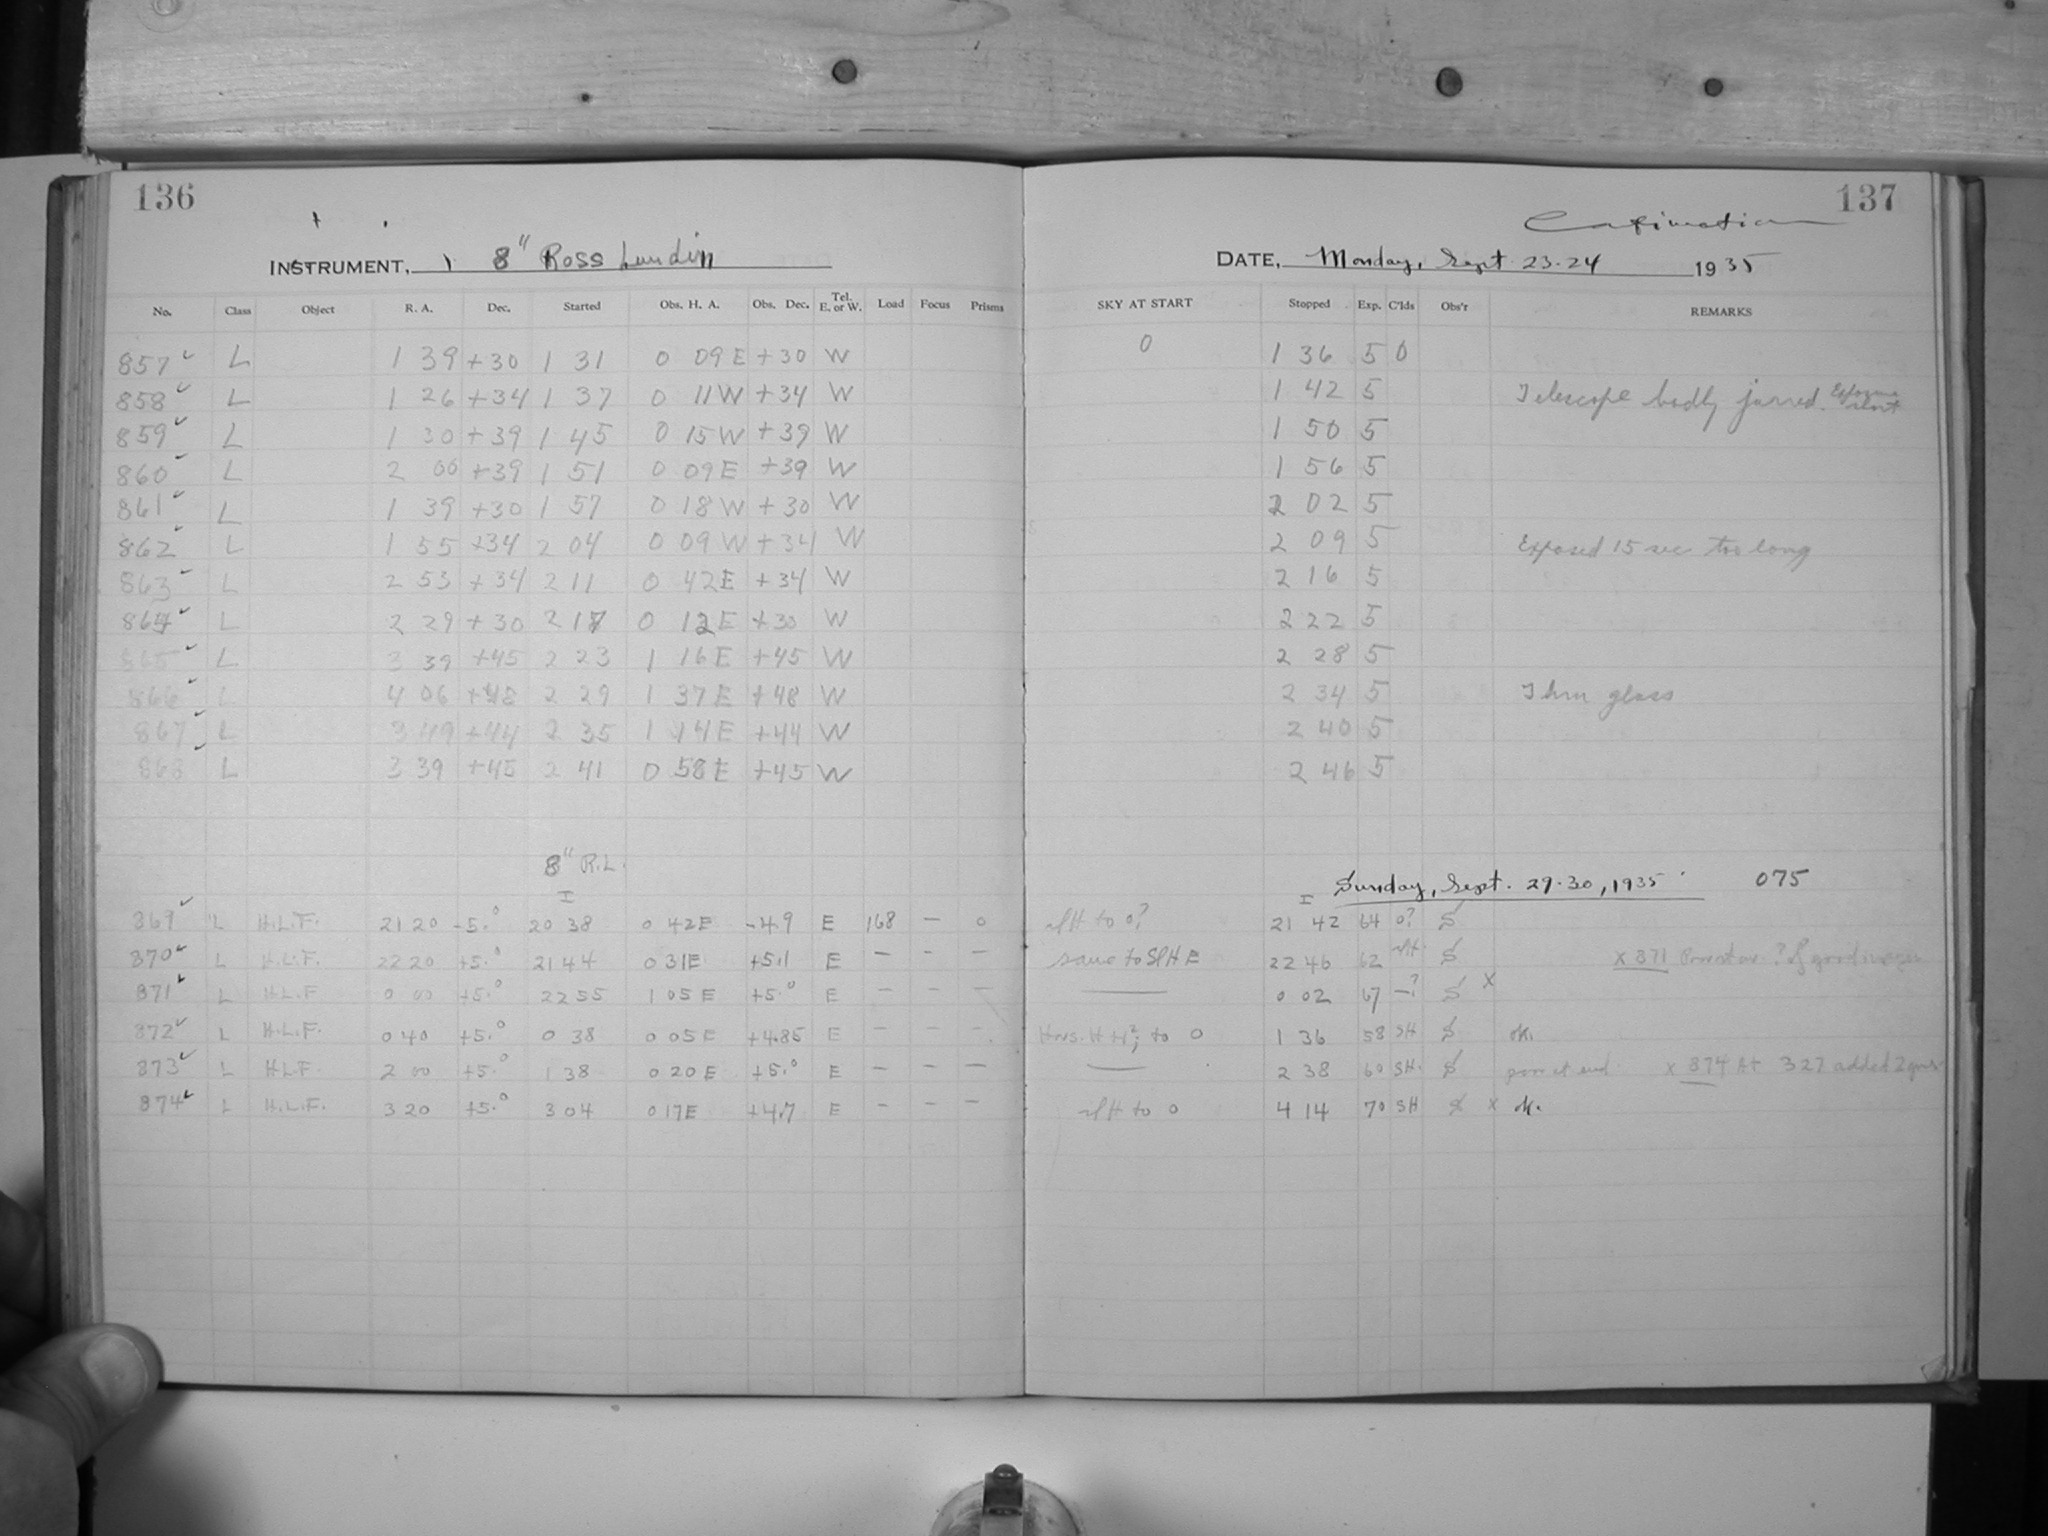 136
INSTRUMENT, 8" Ross Lundin
No. Class Object R. A. Dec. Started Obs. H. A. Obs. Dec. Tel. E. or W. Load Focus Prisms
857 L 1 39 +30 1 31 0 09 E +30 W
858 L 1 26 +34 1 37 0 11 W +34 W
859 L 1 30 +39 1 45 0 15 W +39 W
860 L 2 00 +39 1 51 0 09 E +39 W
861 L 1 39 +30 1 57 0 18 W +30 W
862 L 1 55 +34 2 04 0 09 W +34 W
863 L 2 53 +34 2 11 0 42 E +34 W
864 L 2 29 +30 2 17 0 12 E +30 W
865 L 3 39 +45 2 23 1 16 E +45 W
866 L 4 06 +48 2 29 1 37 E +48 W
867 L 3 49 +44 2 35 1 14 E +44 W
868 L 3 39 +45 2 41 0 58 E +45 W
8" R.L.
I
869 L H.L.F. 21 20 -5.° 20 38 0 42 E -4.9 E 168 - 0
870 L H.L.F. 22 20 +5.° 21 44 0 31 E +5.1 E - - -
871 L H.L.F 0 00 +5.° 22 55 1 05 E +5.° E - - -
872 L H.L.F. 0 40 +5.° 0 38 0 05 E +4.85 E - - -
873 L H.L.F. 2 00 +5.° 1 38 0 20 E +5.° E - - -
874 L H.L.F. 3 20 +5.° 3 04 0 17 E +4.7 E - - -
137
DATE, Monday, Sept 23-24 1935
SKY AT START Stopped Exp. C'lds Obs'r REMARKS
0 1 36 5 0
1 42 5 Telescope badly jarred. Exposure short
1 50 5
1 56 5
2 02 5
2 09 5 Exposed 15 sec too long
2 16 5
2 22 5
2 28 5
2 34 5 Thru glass
2 40 5
2 46 5
I Sunday, Sept. 29-30, 1935 075
SH to 0? 21 42 64 0? S
same to SlH E 22 46 62 S x 871
0 02 67 -? S x
to 0 1 36 58 SH S ok.
2 38 60 SH. S poor at end x 874 At 327 added
SH to 0 4 14 70 SH S x ok.